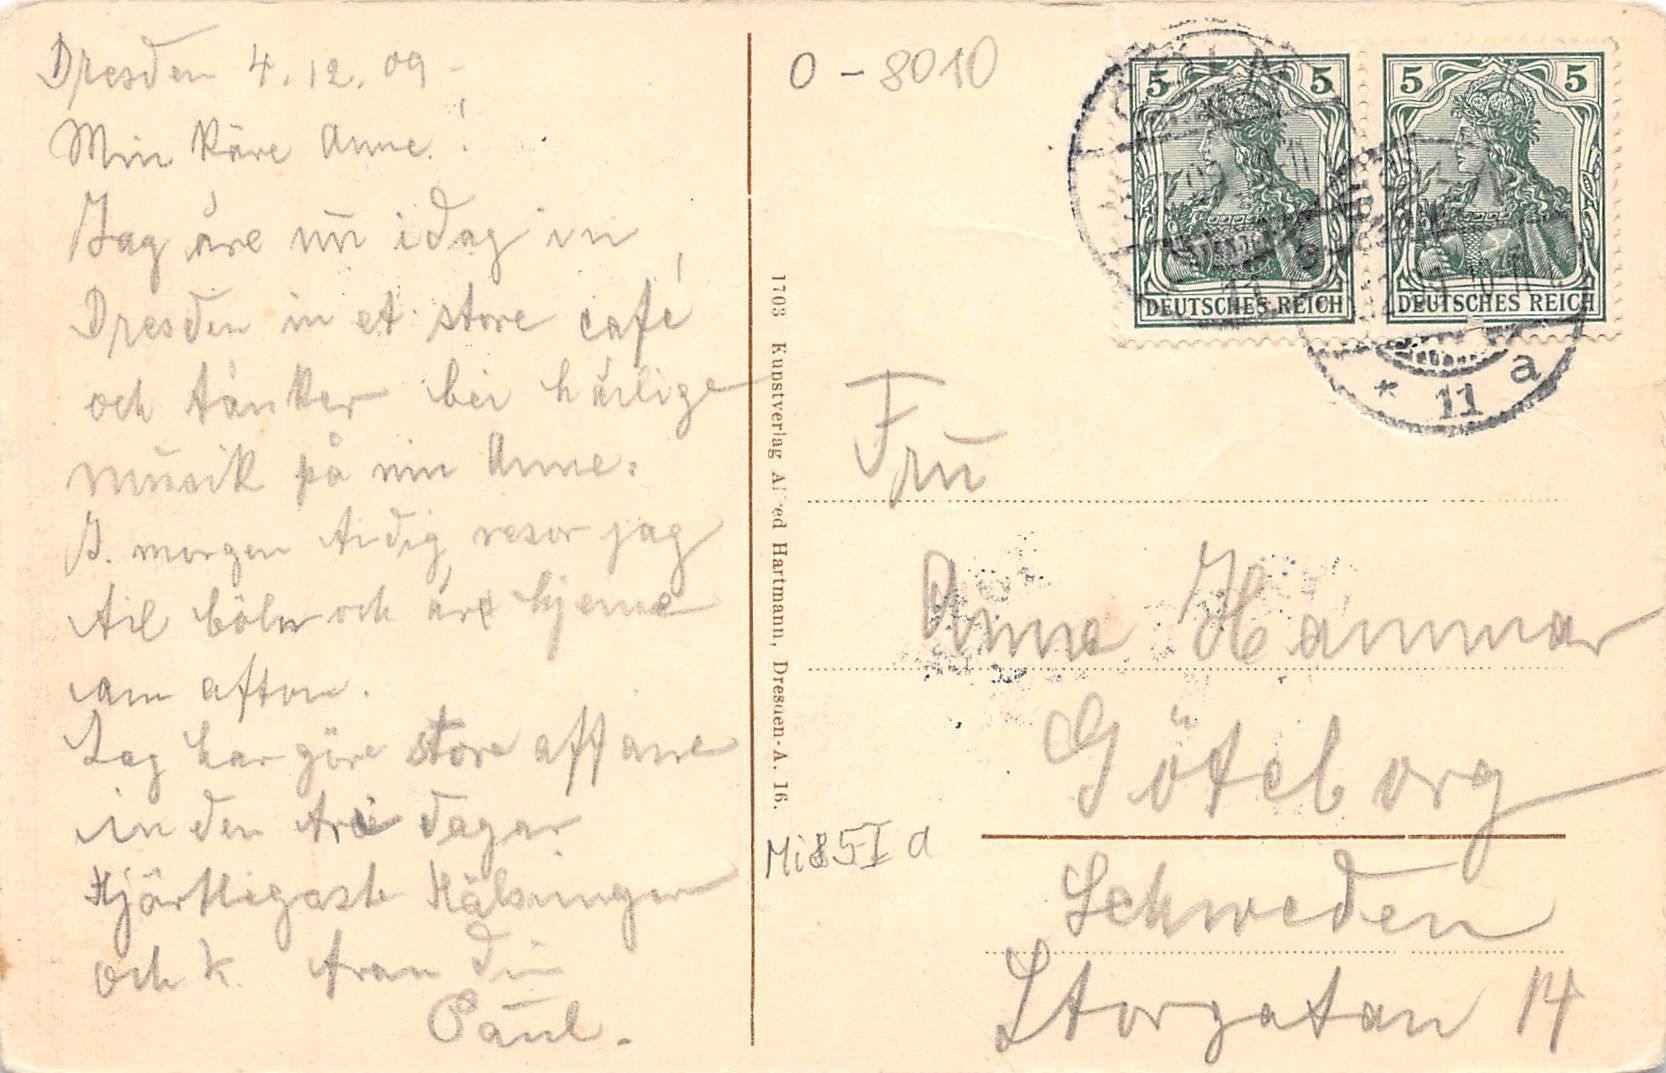 Dresden 4.12.09 -
Min käre Anne!
Jag äre nu idag in
Dresden in et store café
och tänker bei härlige
musik på min Anne.
I. morgen tidig resor jag
til Cöln och äre hjeme
am afton.
Jag har göre store affare
in den tre dagar
Hjärtligaste Hälsningar
och k. fran Din
Paul.
1703 Kunstverlag Alfred Hartmann, Dresden-A. 16.
O - 8010
5 5
DEUTSCHES REICH
5 5
DEUTSCHES REICH
* 11 a
Fru
Anne Hammar
Göteborg
Schweden
Storgatan 14
Mi 85 I a